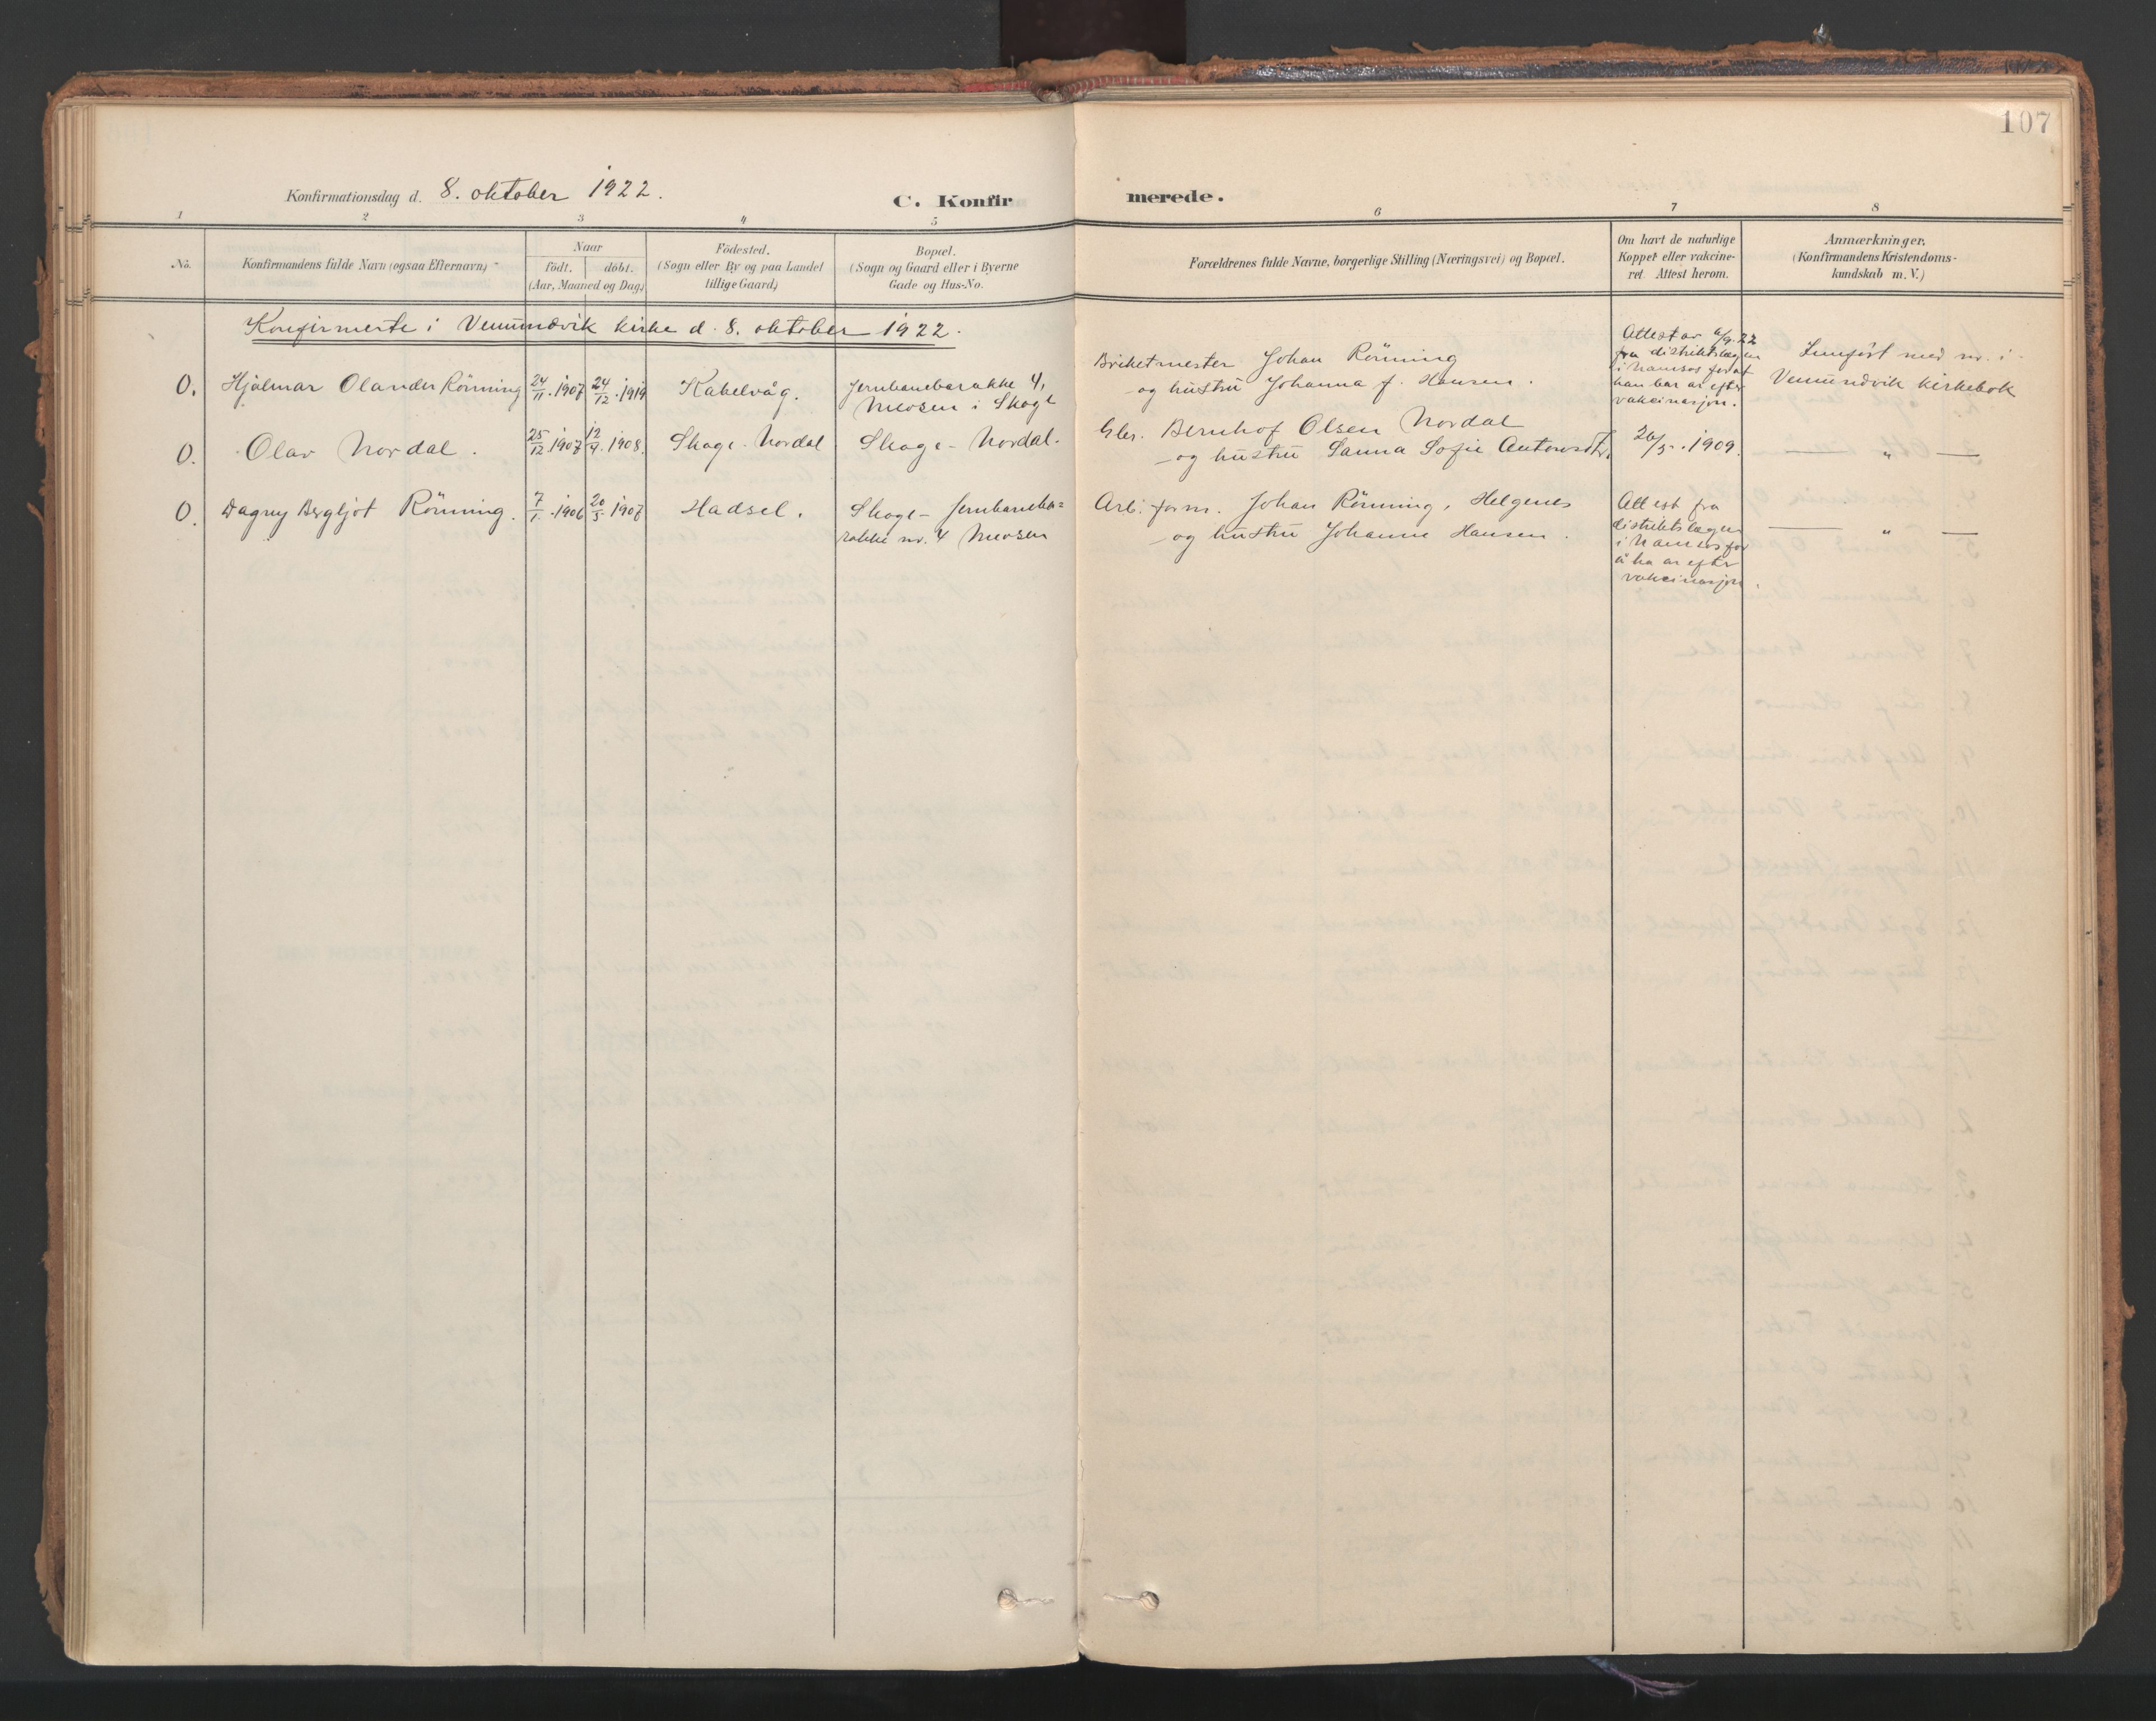 107
Konfirmationsdag d. 8. oktober 1922.
C. Konfirmerede.
1 2 3 4 5 6 7 8
No.
Konfirmandens fulde Navn (ogsaa Efternavn)
Naar
födt. döbt.
(Aar, Maaned og Dag)
Födested.
(Sogn eller By og paa Landet
tillige Gaard)
Bopæl.
(Sogn og Gaard eller i Byerne
Gade og Hus-No.
Forældrenes fulde Navne, borgerlige Stilling (Næringsvei) og Bopæl.
Om havt de naturlige
Kopper eller vakcine-
ret. Attest herom.
Anmærkninger.
(Konfirmandens Kristendoms-
kundskab m. V.)
Konfirmerte i Vemundvik kirke d. 8. oktober 1922.
0. Hjalmar Olander Rönning 24/11.1907 24/12.1919 Kabelvåg. Jernbanebarakke 4,
Meosen i Skage
Johan Rönning
og hustru Johanna f. Hansen.
Attest av 6/9.22
fra distriktslægen
i Namsos for at
han bar ar efter
vakcinasjon.
Innfört med nr. i
Vemundvik kirkebok
0. Olav Nordal. 25/12.1907 12/4.1908. Skage - Nordal Skage - Nordal.
Gbr. Bernhof Olsen Nordal
og hustru Sanna Sofie Antonsdtr.
26/5.1909.
— " —
0. Dagny Bergljot Rönning. 7/1.1906 20/5.1907 Hadsel. Skage - Jernbaneba=
rakke nr. 4 Meosen
Arb. form. Johan Rönning, Helgenes
og hustru Johanne Hansen.
Attest fra
distriktslægen
i Namsos for
å ha ar efter
vakcinasjon.
— " —